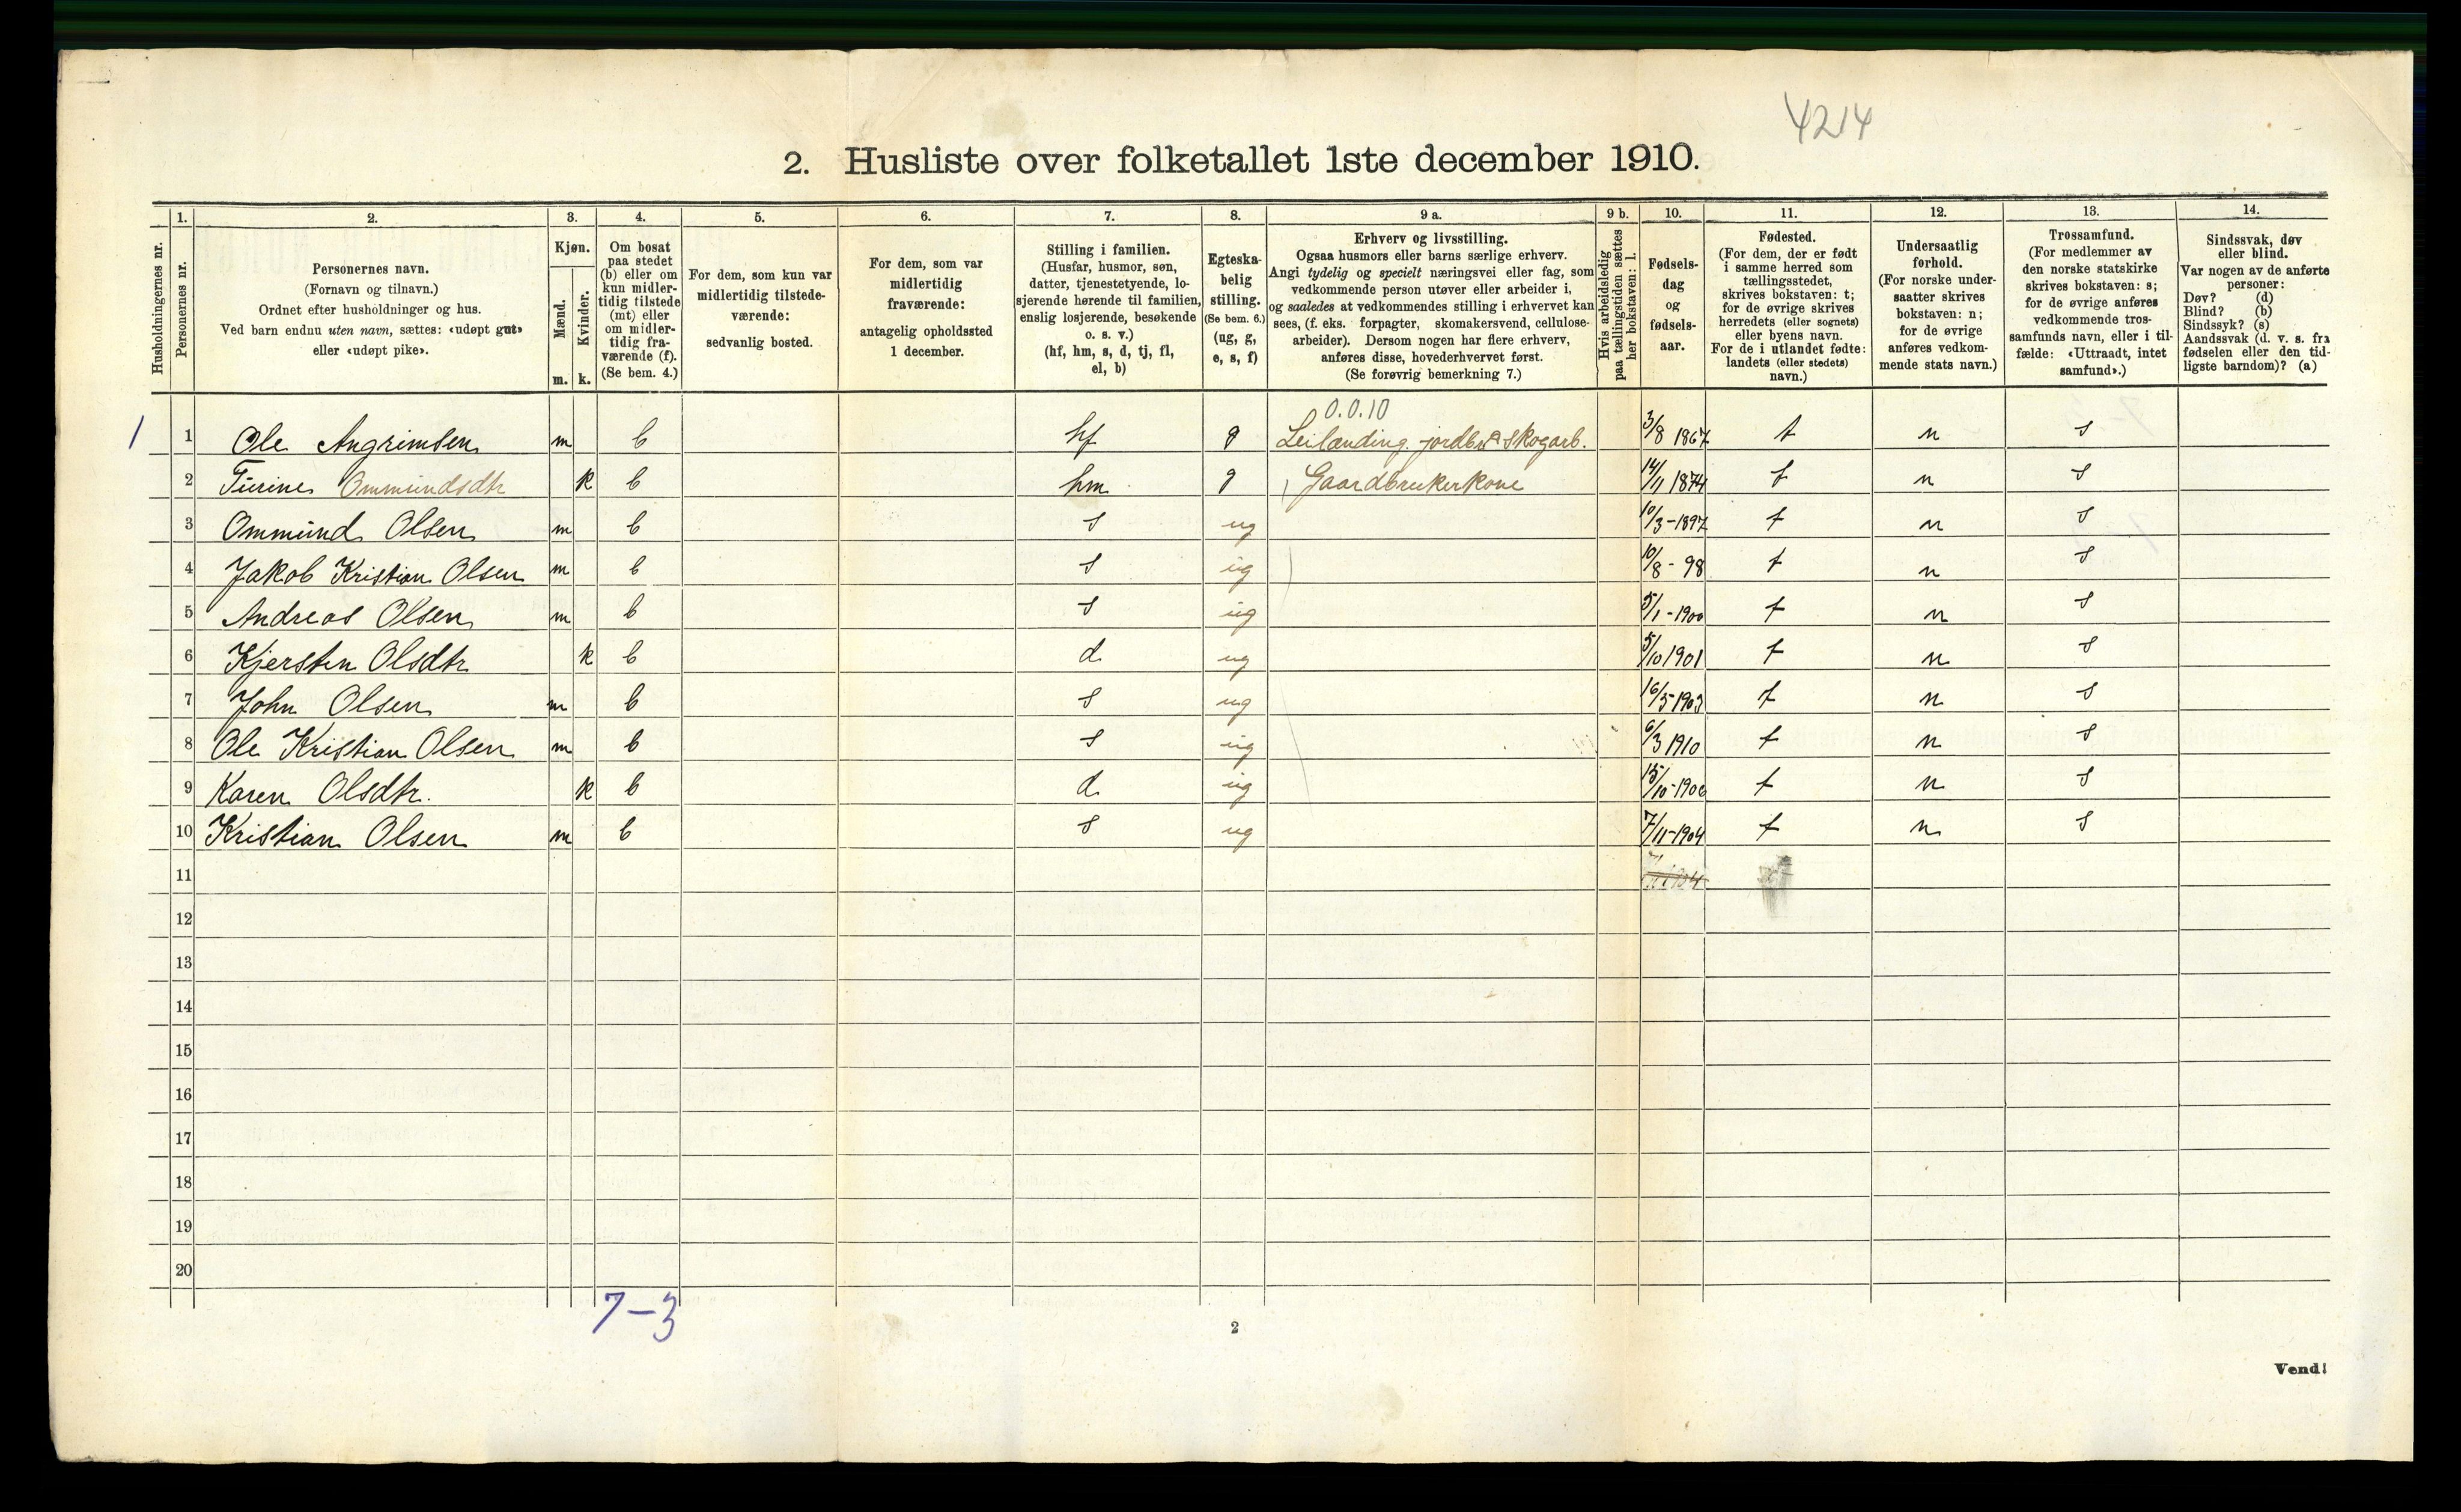 4214
2. Husliste over folketallet 1ste december 1910.
Husholdningernes nr.
1.
Personernes nr.
2.
Personernes navn.
(Fornavn og tilnavn.)
Ordnet efter husholdninger og hus.
Ved barn endnu uten navn, sættes: «udøpt gut»
eller «udøpt pike».
3.
Kjøn.
Mænd.
Kvinder.
m. k.
4.
Om bosat
paa stedet
(b) eller om
kun midler-
tidig tilstede
(mt) eller
om midler-
tidig fra-
værende (f).
(Se bem. 4.)
5.
For dem, som kun var
midlertidig tilstede-
værende:
sedvanlig bosted.
6.
For dem, som var
midlertidig
fraværende:
antagelig opholdssted
1 december.
7.
Stilling i familien.
(Husfar, husmor, søn,
datter, tjenestetyende, lo-
sjerende hørende til familien,
enslig losjerende, besøkende
o. s. v.)
(hf, hm, s, d, tj, fl,
el, b)
8.
Egteska-
belig
stilling.
(Se bem. 6.)
(ug, g,
e, s, f)
9 a.
Erhverv og livsstilling.
Ogsaa husmors eller barns særlige erhverv.
Angi tydelig og specielt næringsvei eller fag, som
vedkommende person utøver eller arbeider i,
og saaledes at vedkommendes stilling i erhvervet kan
sees, (f. eks. forpagter, skomakersvend, cellulose-
arbeider). Dersom nogen har flere erhverv,
anføres disse, hovederhvervet først.
(Se forøvrig bemerkning 7.)
9 b.
Hvis arbeidsledig
paa tællingstiden sættes
her bokstaven: l.
10.
Fødsels-
dag
og
fødsels-
aar.
11.
Fødested.
(For dem, der er født
i samme herred som
tællingsstedet,
skrives bokstaven: t;
for de øvrige skrives
herredets (eller sognets)
eller byens navn.
For de i utlandet fødte:
landets (eller stedets)
navn.)
12.
Undersaatlig
forhold.
(For norske under-
saatter skrives
bokstaven: n;
for de øvrige
anføres vedkom-
mende stats navn.)
13.
Trossamfund.
(For medlemmer av
den norske statskirke
skrives bokstaven: s;
for de øvrige anføres
vedkommende tros-
samfunds navn, eller i til-
fælde: «Uttraadt, intet
samfund».)
14.
Sindssvak, døv
eller blind.
Var nogen av de anførte
personer:
Døv? (d)
Blind? (b)
Sindssyk? (s)
Aandssvak (d. v. s. fra
fødselen eller den tid-
ligste barndom)? (a)
0.0.10
1 1 Ole Angrimsen m b hf g Leilænding. jordbr. & skogarb. 3/8 1867 t n s
2 Turine Ommundsdtr k b hm g Gaardbrukerkone 14/11 1874 t n s
3 Ommund Olsen m b s ug 10/3-1897 t n s
4 Jakob Kristian Olsen m b s ug 10/8-98 t n s
5 Andreas Olsen m b s ug 5/1-1900 t n s
6 Kjersten Olsdtr k b d ug 5/10 1901 t n s
7 John Olsen m b s ug 16/5-1903 t n s
8 Ole Kristian Olsen m b s ug 6/3 1910 t n s
9 Karen Olsdtr. k b d ug 15/10-1906 t n s
10 Kristian Olsen m b s ug 7/11-1904 t n s
11
12
13
14
15
16
17
18
19
20
7-3
2
Vend!